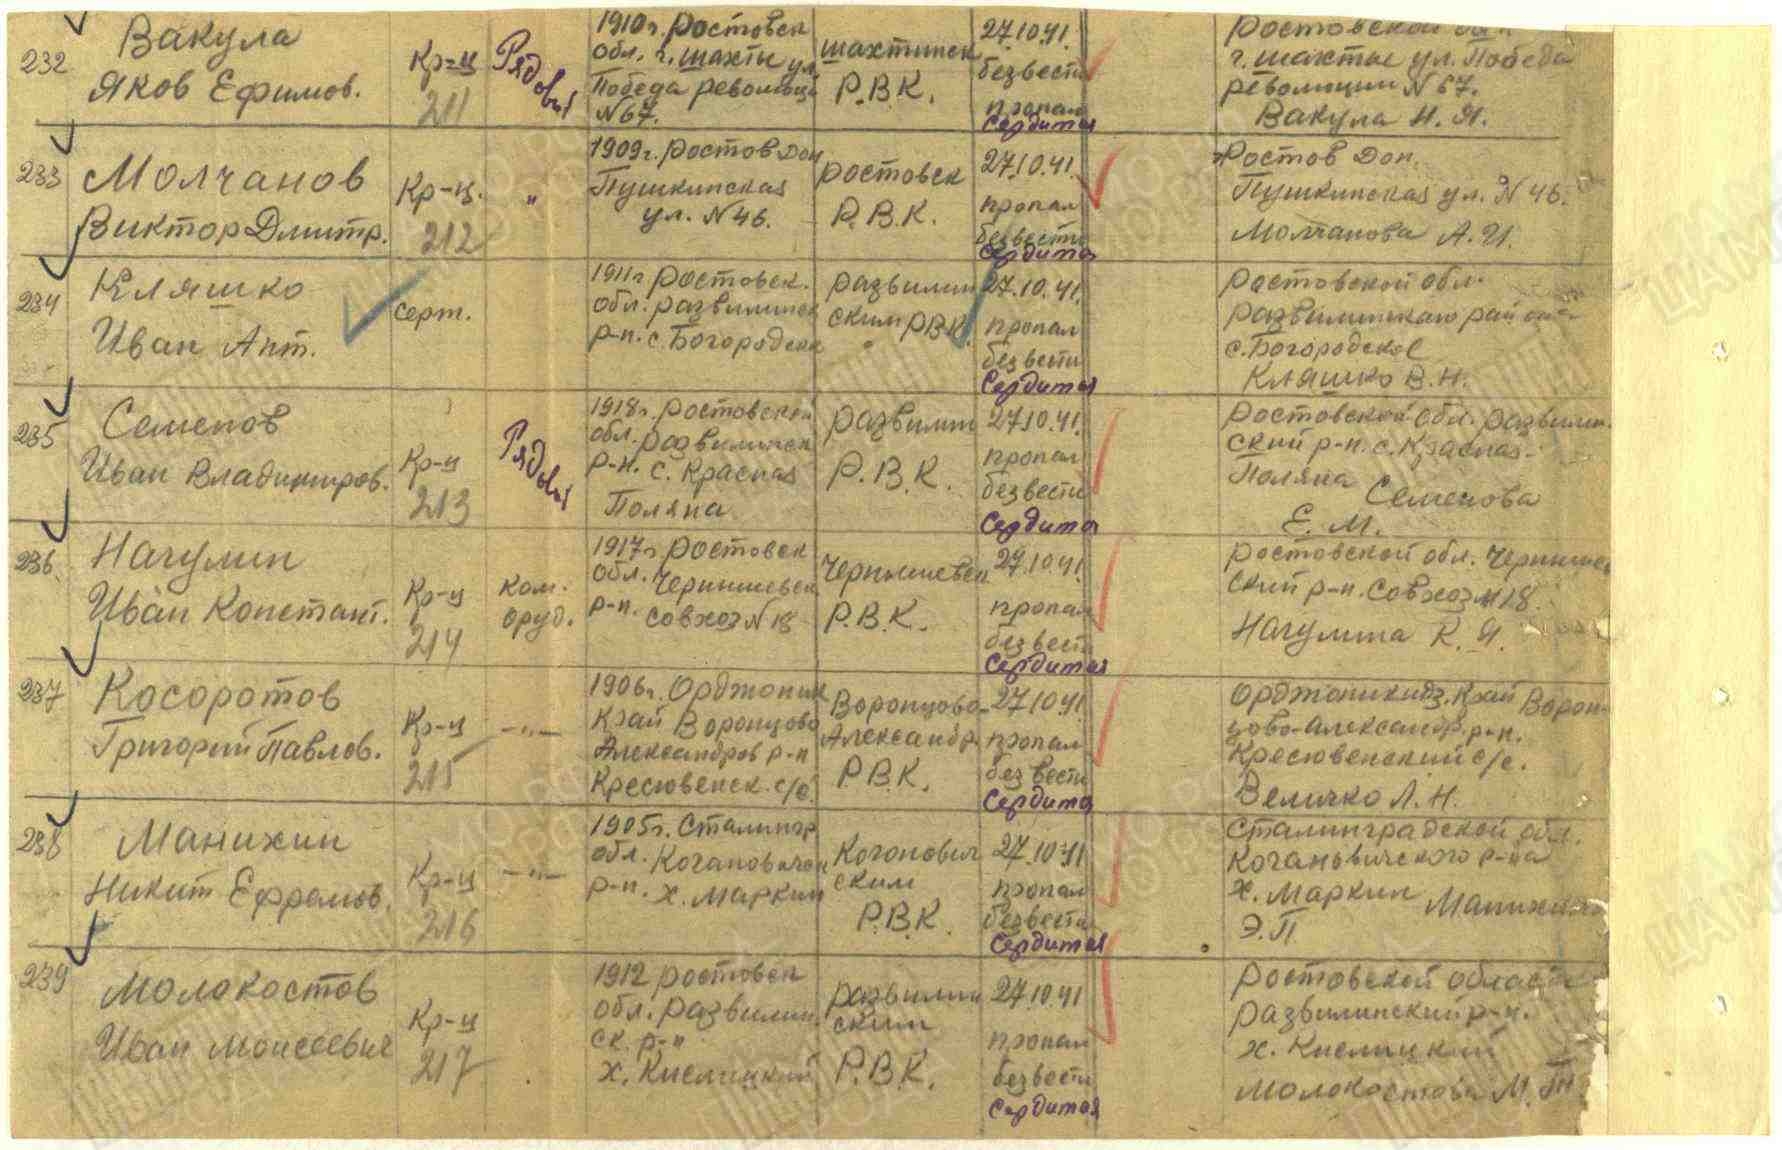 232
Вакула
Яков Ефимов.
Кр-ц
211
Рядовой
1910 г. Ростовск
обл. г. Шахты ул.
Победа революци
N 67.
Шахтинск
Р.В.К.
27.10.41.
безвести
пропал
Сердитоя
Ростовской обл.
г. Шахты ул. Победа
революции N 67.
Вакула Н. Я.
233
Молчанов
Виктор Дмитр.
Кр-ц.
212
"
1909 г. Ростов Дон
Пушкинская
ул. N 46.
Ростовск
Р.В.К.
27.10.41.
пропал
безвести
Сердитоя
Ростов Дон.
Пушкинская ул. N 46.
Молчанова А. И.
234
Кляшко
Иван Ант.
серт.
1911 г Ростовск.
обл. Развилинск
р-н. с. Богородск
Развилин
ским Р.В.К.
27.10.41.
пропал
безвести
Сердитоя
Ростовской обл.
Развилинскаго района
с. Богородское
Кляшко В. Н.
235
Семенов
Иван Владимиров.
Кр-ц
213
Рядовой
1918 г. Ростовской
обл. Развилинск
р-н. с. Красная
Поляна
Развилин
Р.В.К.
27.10.41.
пропал
безвести
Сердитоя
Ростовской обл. Развилин.
ский р-н. с. Красная
Поляна Семенова
Е. М.
236
Нагулин
Иван Констант.
Кр-ц
214
ком.
оруд.
1917 г. Ростовск
обл. Чернышевск
р-н. совхоз N 18
Чернышевск
Р.В.К.
27.10.41.
пропал
безвести
Сердитоя
Ростовской обл. Чернышев
ский р-н. Совхоз N 18.
Нагулина К. Я.
237
Косоротов
Григорий Павлов.
Кр-ц
215
-"-
1906 г. Орджоник
Край Воронцово
Александров р-н
Кресювенск. с/с.
Воронцово-
Александр.
Р.В.К.
27.10.41.
пропал
без вести
Сердитоя
Орджоникидз. Край Ворон-
цово-Александр. р-н.
Кресювенский с/с.
Величко Л. Н.
238
Манихин
Никит Ефремов.
Кр-ц
216
-"-
1905 г. Сталингр.
обл. Когановичск
р-н. х. Маркин
Когонович
ским
Р.В.К.
27.10.41
пропал
безвести
Сердитоя
Сталинградской обл.
Коганьвичского р-на
х. Маркин Манихина
Э. П
239
Молокостов
Иван Моисеевич
Кр-ц
217
1912 Ростовск
обл. Развилин.
ск. р-н
х. Кислицкий
Развилин
ским
Р.В.К.
27.10.41
пропал
безвести
Сердитоя
Ростовской области
Развилинский р-н.
х. Кислицкий
Молокостова М. П.